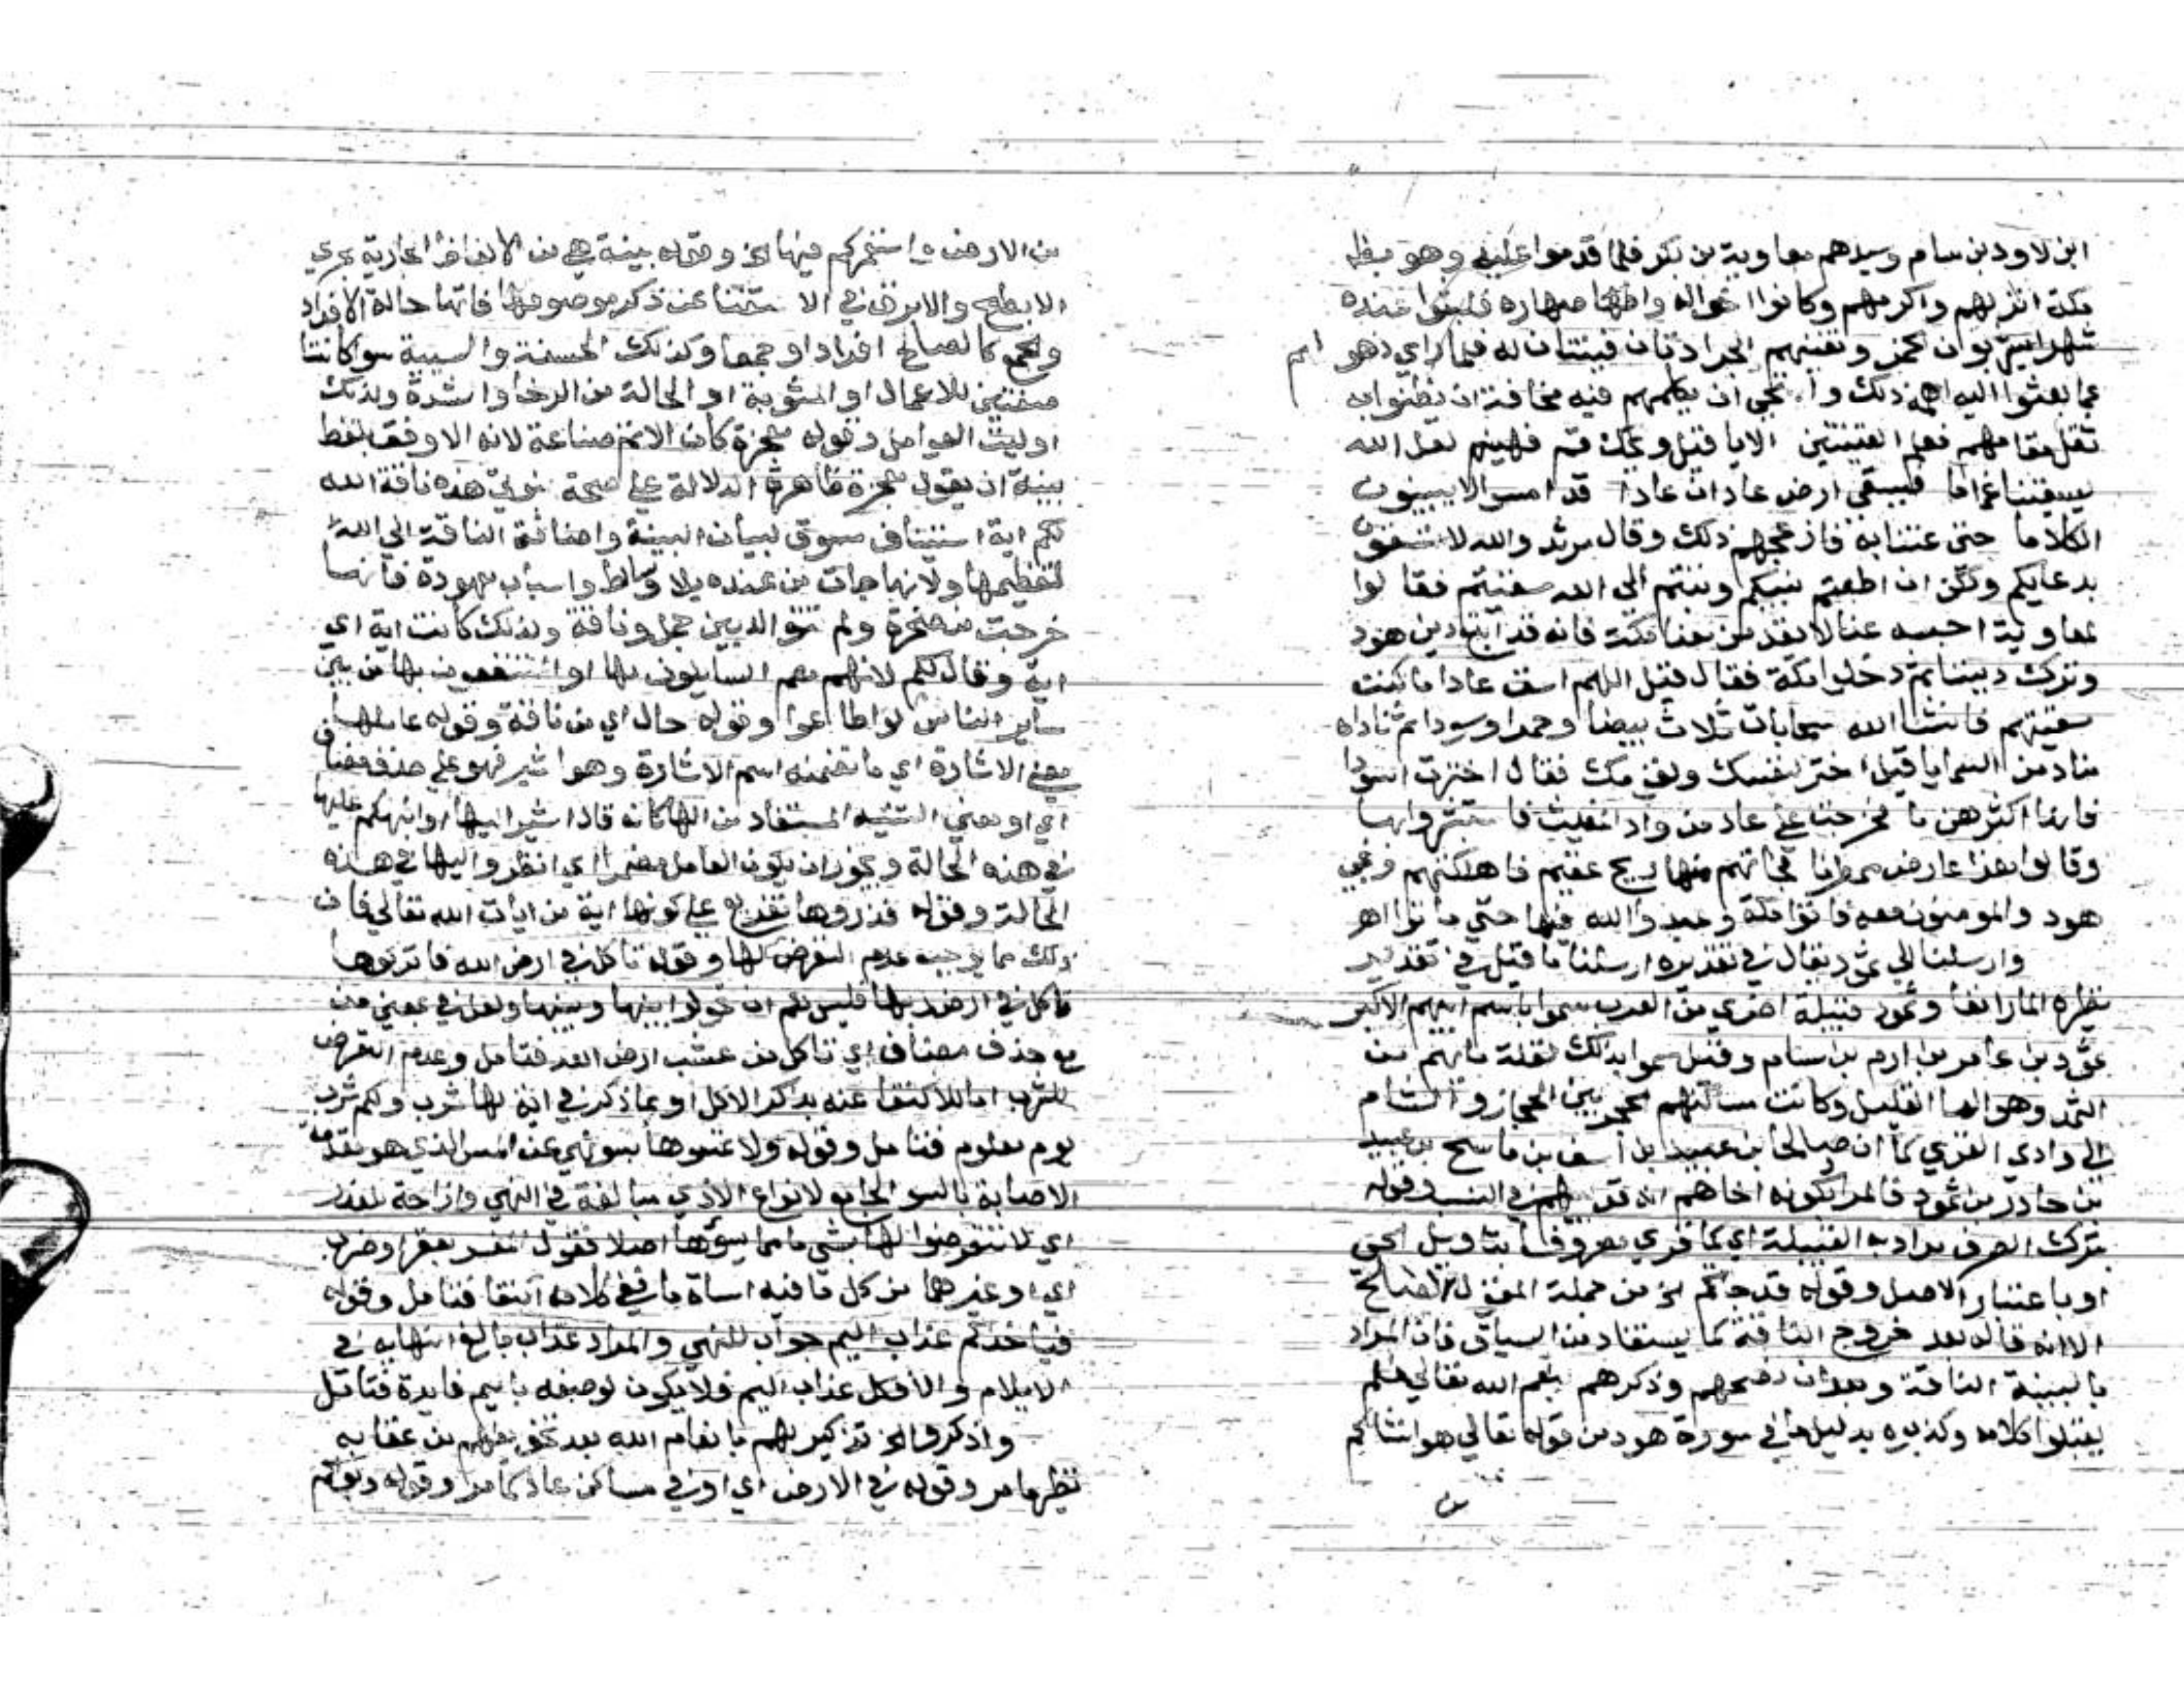 ابن لاود بن سام وسيدهم معاوية بن بكر فلما قدموا عليه وهو بظاهر
مكة انزلهم واكرمهم وكانوا اخواله واصهاره فلبثوا عنده
شهرا يشربون الخمر وتغنيهم الجرادتان قينتان له فلما راي ذهولهم
عما بعثوا اليه اهمه ذلك واستحيى ان يكلمهم فيه مخافة ان يظنوا به
ثقل مقامهم فعلم القينتين الا يا قيل ويحك قم فهينم لعل الله
يسقينا غماما فيسقي ارض عاد ان عادا قد امسوا لا يبينون
الكلاما حتى غنتا به فازعجهم ذلك وقال مرثد والله لا تسقون
بدعايكم ولكن ان اطعتم نبيكم وتبتم الى الله سقيتم فقالوا
لمعاوية احبسه عنا لا يقدمن معنا مكة فانه قد اتبع دين هود
وترك ديننا ثم دخلوا مكة فقال قيل اللهم اسق عادا ما كنت
تسقيهم فانشا الله سحابات ثلاث بيضا وحمرا وسودا ثم ناداه
مناد من السما يا قيل اختر لنفسك ولقومك فقال اخترت السودا
فانها اكثرهن ما فخرجت على عاد من واد المغيث فاستبشروا بها
وقالوا هذا عارض ممطرنا فجاتهم منها ريح عقيم فاهلكتهم ونجي
هود والمومنون معه فاتوا مكة وعبدوا الله فيها حتى ماتوا اهـ
وارسلنا الى ثمود يقال في تقديره ارسلنا ما قيل في تقدير
نظيره المار انفا وثمود قبيلة اخرى من العرب سموا باسم ابيهم الاكبر
ثمود بن عامر بن ارم بن سام وقيل سموا بذلك لقلة مايهم من
الثمد وهو الما القليل وكانت مساكنهم الحجر بين الحجاز والشام
الى وادي القرى كما ان صالحا بن عبيد بن اسف بن ماسح بن عبيد
بن حاذر بن ثمود فالمراد بكونه اخاهم انه منهم في النسب وقوله
بترك الصرف مرادا به القبيلة اي كما قري مصروفا بتاويل الحي
او باعتبار الاصل وقوله قد جاتكم الخ من جملة المقول لصالح
الا انه قاله بعد خروج الناقة كما يستفاد من السياق فان المراد
بالبينة الناقة وبعد ان نصحهم وذكرهم بنعم الله تعالى فلم
يقبلوا كلامه وكذبوه بدليل ما في سورة هود من قوله تعالى هو انشاكم
من
من الارض واستعمركم فيها الخ وقوله بينة هي من الالفاظ الجارية مجرى
الابطح والابرق في الاستغنا عن ذكر موصوفها فانها حالة الافراد
والجمع كالصالح افرادا وجمعا وكذلك الحسنة والسيية سوا كانتا
صفتين للاعمال او المثوبة او الحالة من الرخا والشدة ولذلك
اوليت العوامل وقوله معجزة كان الانسب صناعة لانه الاوفق بلفظ
بينة ان يقول معجزة ظاهرة الدلالة على صحة نبوتي هذه ناقة الله
لكم اية استيناف مسوق لبيان البينة واضافة الناقة الى الله
لتعظيمها ولانها جات من عنده بلا وسايط واسباب معهودة فانها
خرجت من صخرة ولم تتوالد بين جمل وناقة ولذلك كانت اية اي
اية وقال لكم لانهم هم السايلون لها او المنتفعون بها من بين
ساير الناس لو اطاعوا وقوله حال اي من ناقة وقوله عاملها
معنى الاشارة اي ما تضمنه اسم الاشارة وهو اشير فهو على حذف مضاف
اي او معنى التنبيه المستفاد من الها كانه قال اشير اليها او انبهكم عليها
في هذه الحالة ويجوز ان يكون العامل مضمرا اي انظروا اليها في هذه
الحالة وقوله فذروها تفريع على كونها اية من ايات الله تعالى فان
ذلك مما يوجب عدم التعرض لها وقوله تاكل في ارض الله فاتركوها
تاكل في ارض ربها فليس لكم ان تحولوا بينها وبينها ولعل في بمعنى من
مع حذف مضاف اي تاكل من عشب ارض الله فتامل وعدم التعرض
للشرب اما للاكتفا عنه بذكر الاكل او بما ذكر في اية لها شرب ولكم شرب
يوم معلوم فتامل وقوله ولا تمسوها بسو نهي عن المس الذي هو مقدمة
الاصابة بالسو الجامع لانواع الاذى مبالغة في النهي وازاحة للعذر
اي لا تتعرضوا لها بشي مما يسوها اصلا فقول المفسر بعقر او ضرب
اي او غيرهما من كل ما فيه اساة ما في كلامه اتفقا فتامل وقوله
فياخذكم عذاب اليم جواب للنهي والمراد عذاب بالغ النهاية في
الايلام والا فكل عذاب اليم فلا يكون لوصفه باليم فايدة فتامل
واذكروا الخ تذكير لهم بانعام الله بعد تخويفهم من عقابه
نظير ما مر وقوله في الارض اي او في مساكن عاد كما مر وقوله وبوأكم